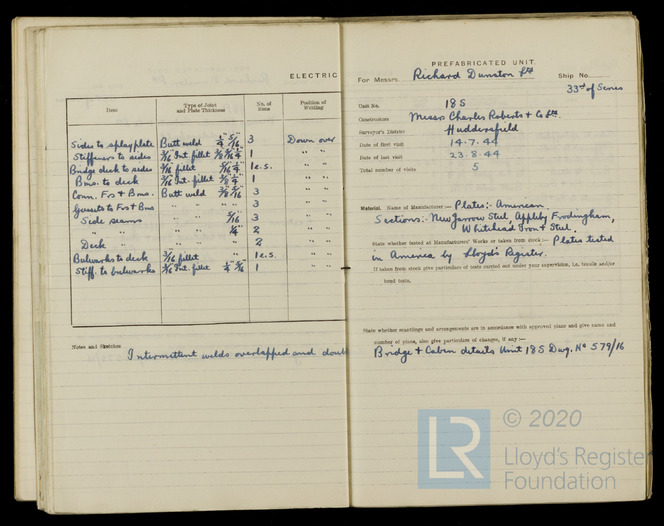 ELECTRIC
Item Type of Joint and Plate Thickness No. of Runs Position of Welding
Sides to splayplate Butt weld 1/4" 5/16" 3 Down over
Stiffeners to sides 3/16 Int. fillet 3/8 5/16 1/4 1 " "
Bridge deck to sides 3/16 fillet 5/16 1/4 1 e.s. " "
Bms. to deck 3/16 Int. fillet 3/8 1/4 1 " "
Conn. Frs & Bms. Butt weld 3/8 5/16 3 " "
Gussets to Frs & Bms " " " " 3 " "
Side seams " " 5/16 3 " "
" " " " 1/4" 2 " "
Deck " " " " 2 " "
Bulwarks to deck 3/16 fillet " 1 e.s. " "
Stiff. to bulwarks 3/16 Int. fillet 1/4" 5/16 1 " "
Notes and Sketches
Intermittent welds overlapped and doub
PREFABRICATED UNIT.
For Messrs. Richard Dunston Ltd Ship No.
33rd of Series
Unit No. 18S
Constructors Messrs Charles Roberts & Co Ltd.
Surveyor's District Huddersfield
Date of first visit 14.7.44
Date of last visit 23.8.44
Total number of visits 5
Material. Name of Manufacturer:— Plates:- American.
Sections:- New Jarrow Steel, Appleby Frodingham,
Whitehead Iron & Steel.
State whether tested at Manufacturers' Works or taken from stock:— Plates tested
in America by Lloyd's Register.
If taken from stock give particulars of tests carried out under your supervision, i.e. tensile and/or
bend tests.
State whether scantlings and arrangements are in accordance with approved plans and give name and
number of plans, also give particulars of changes, if any:—
Bridge & Cabin details Unit 18S Dwg. No 579/16
LR
© 2020
Lloyd's Register
Foundation